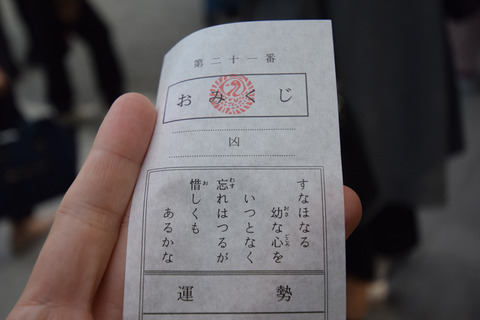 第二十一番
おみくじ
凶
すなほなる
幼な心を
いつとなく
忘れはつるが
惜しくも
あるかな
運勢